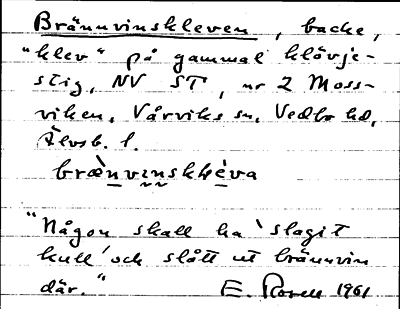 Brännvinskleven, backe,
"klev" på gammal klövje-
stig, NV ST, nr 2 Moss-
viken, Vårviks sn, Vedbo hd,
Älvsb. l.
"Någon skall ha 'slagit
kull' och slått ut brännvin
där."
E. 1961